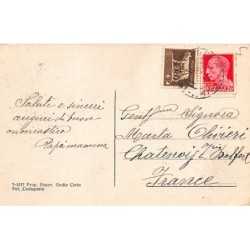 Saluti e sinceri
auguri di buon
onomastico
Papà mamma
T-5217 Prop. Riserv. Guido Coda
Fot. Codognola
Gent/ma Signora
Marta Olivieri
Chatenois p/ Belfort
France